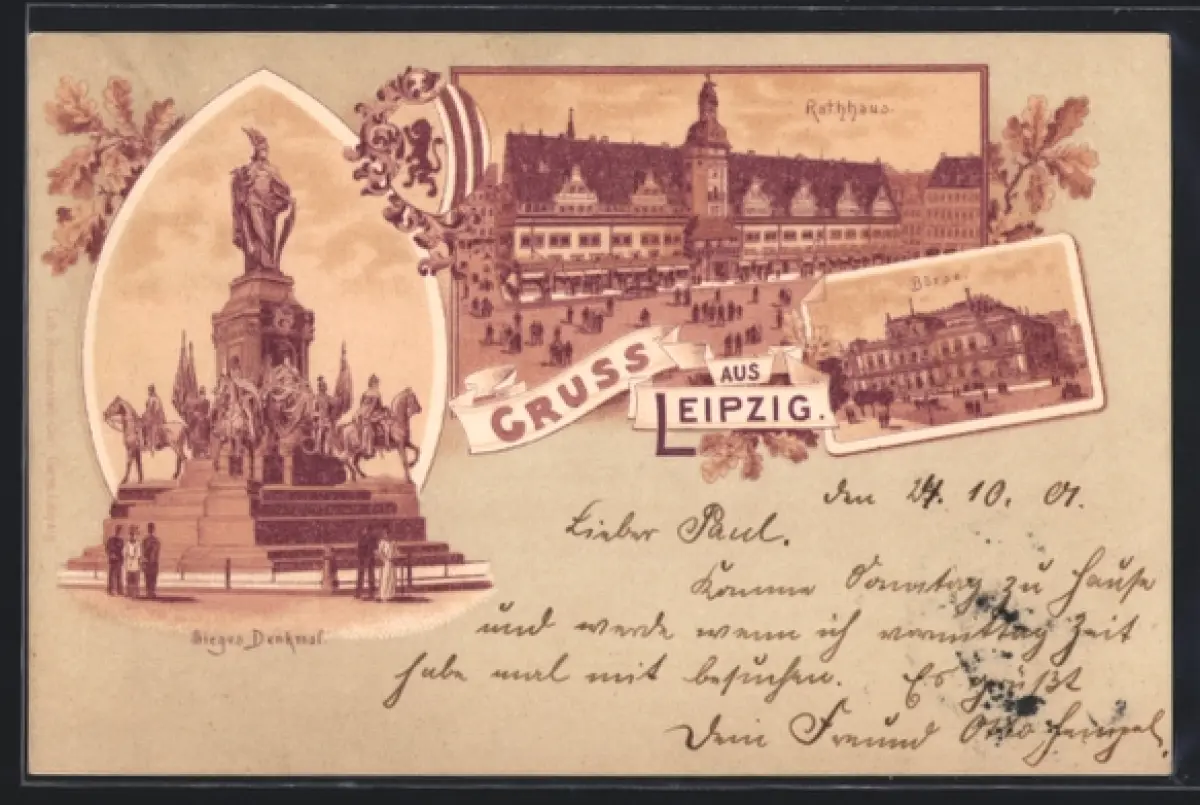 Rathhaus.
Börse.
GRUSS
AUS
LEIPZIG.
Sieges Denkmal.
den 24. 10. 01.
Lieber Paul.
Komme Sonntag zu Hause
und werde wenn ich vormittag Zeit
habe mal mit besuchen. Es grüßt
Dein Freund Otto